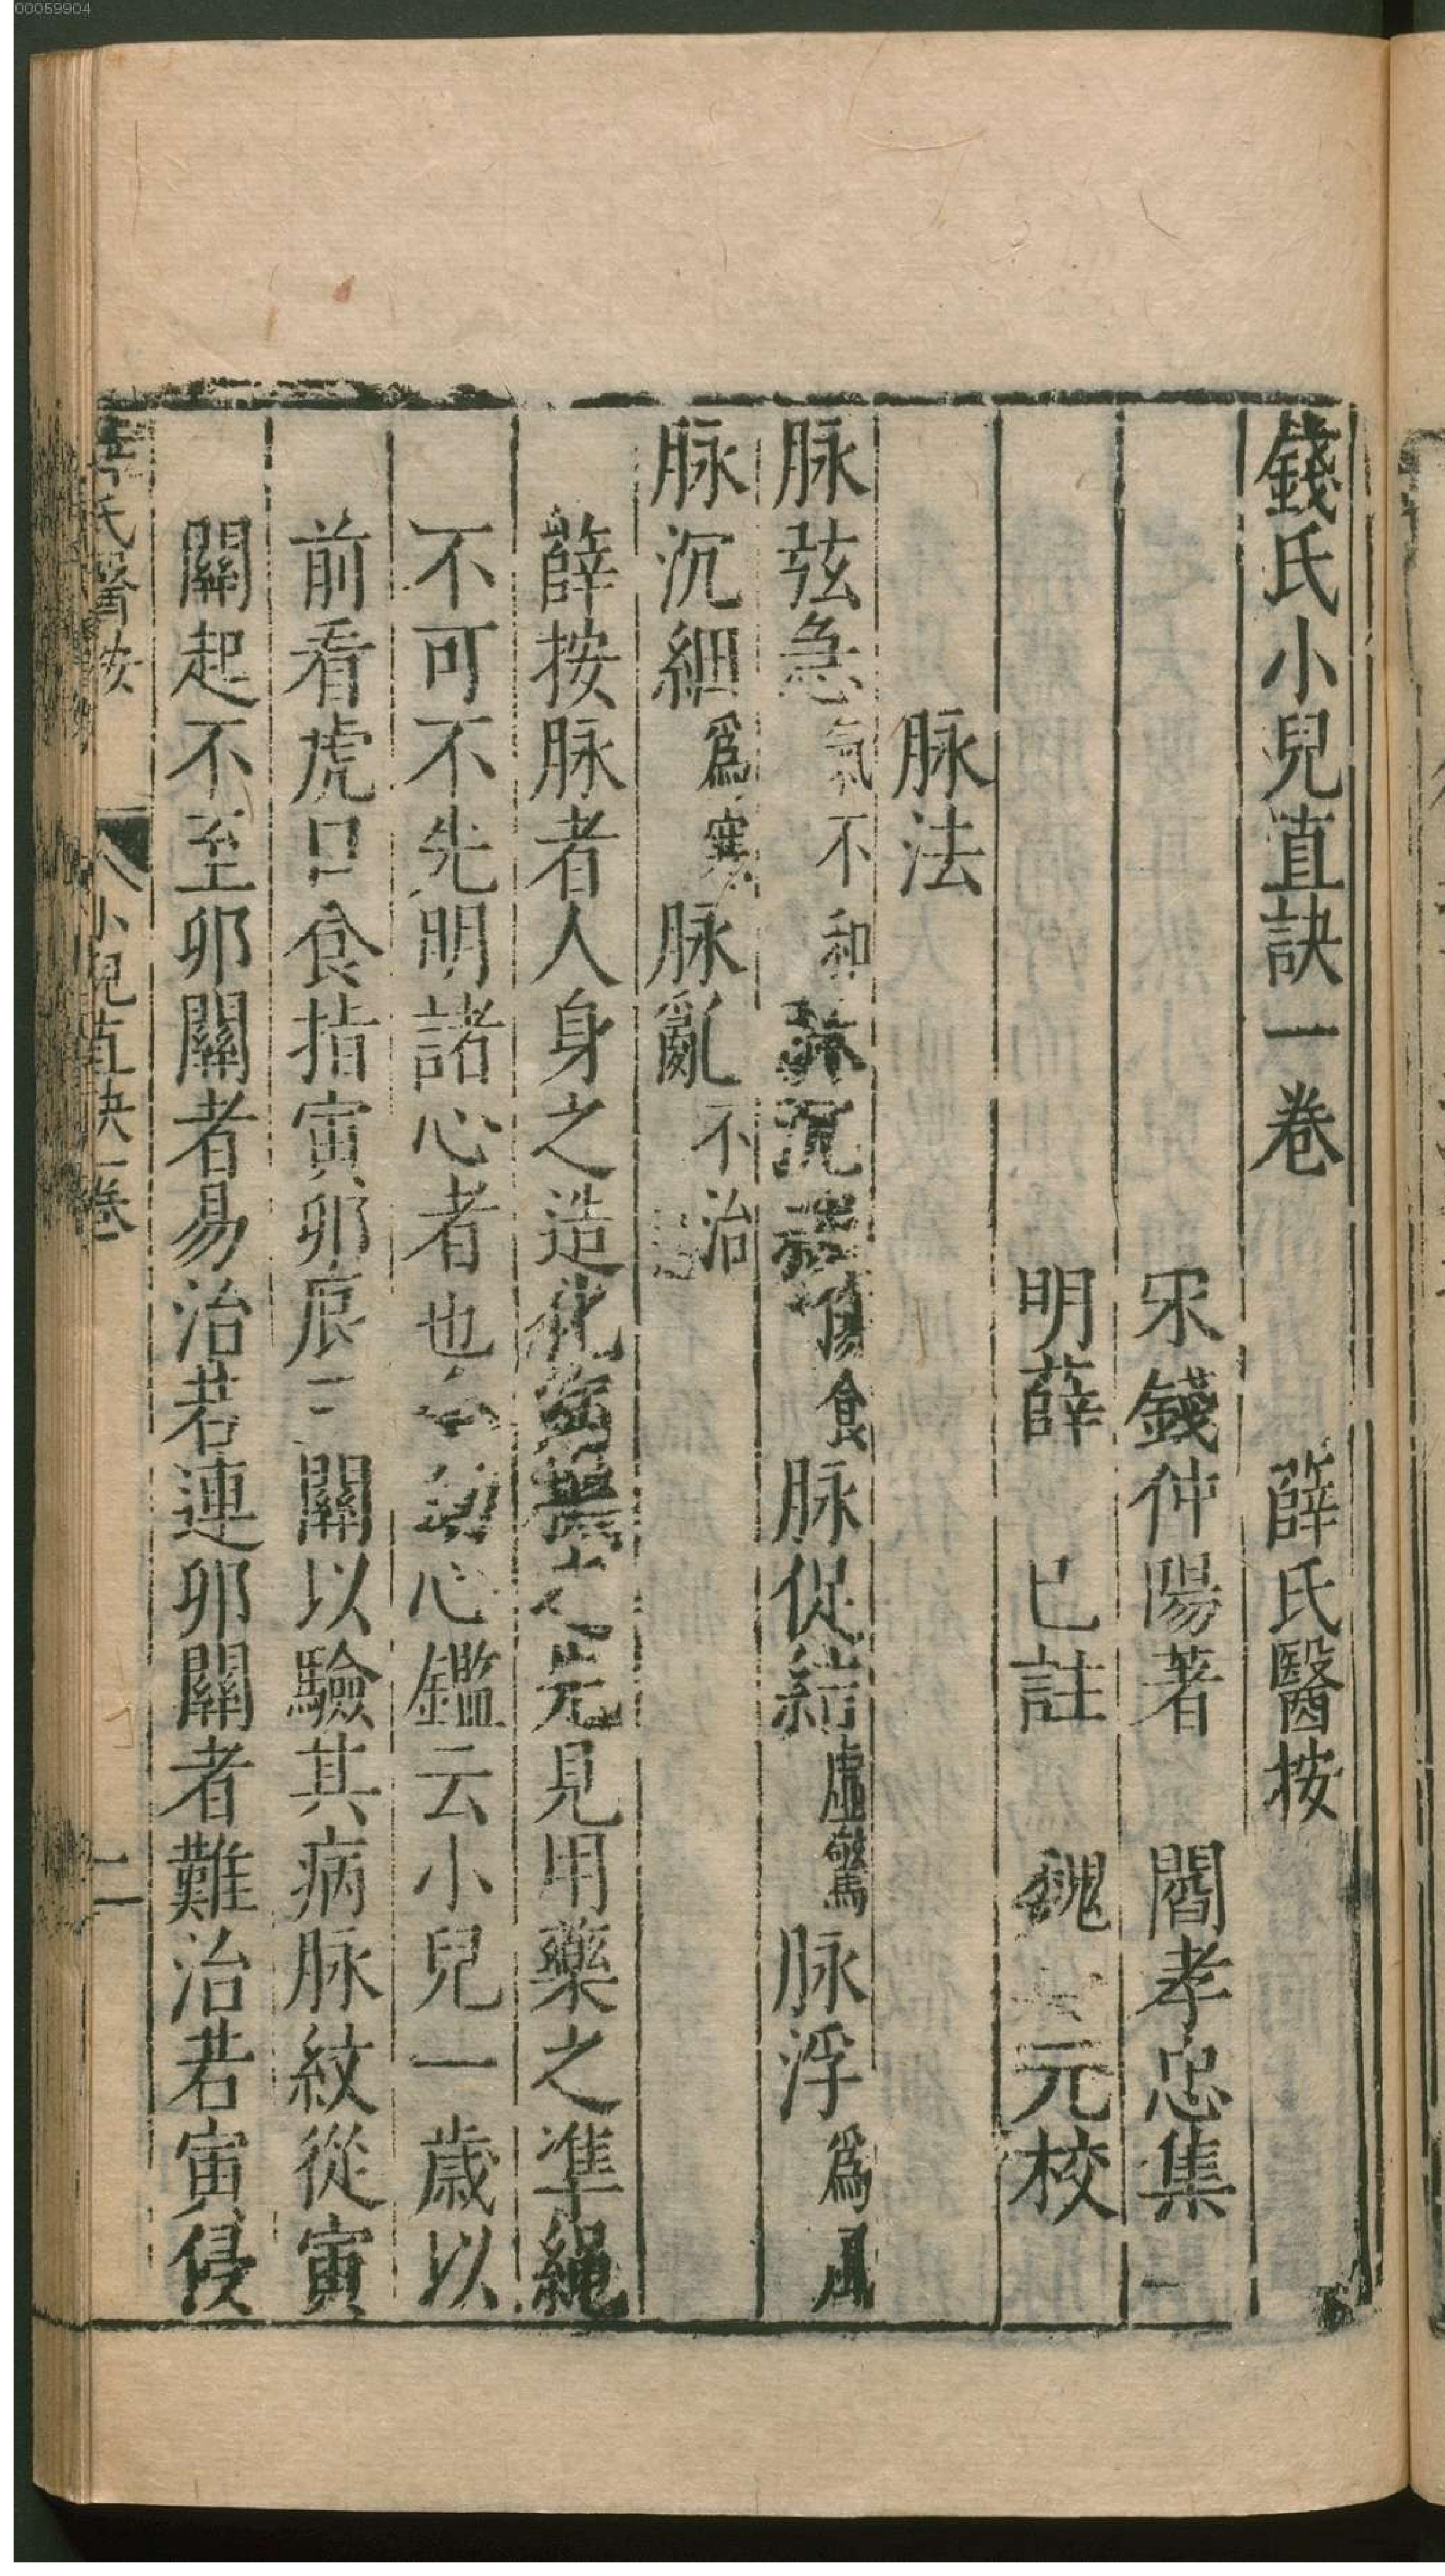 00059904
錢氏小兒直訣一卷 薛氏醫按
宋錢仲陽著 閻孝忠集
明薛 已註 魏 元校
脉法
脉弦急氣不和脉沉緩傷食脉促結虛驚脉浮爲風
脉沉細爲寒脉亂不治
薛按脉者人身之造化之先見用藥之準繩
不可不先明諸心者也心鑑云小兒一歲以
前看虎口食指寅卯辰三關以驗其病脉紋從寅
關起不至卯關者易治若連卯關者難治若寅侵
薛氏醫按 小兒直訣一卷 二